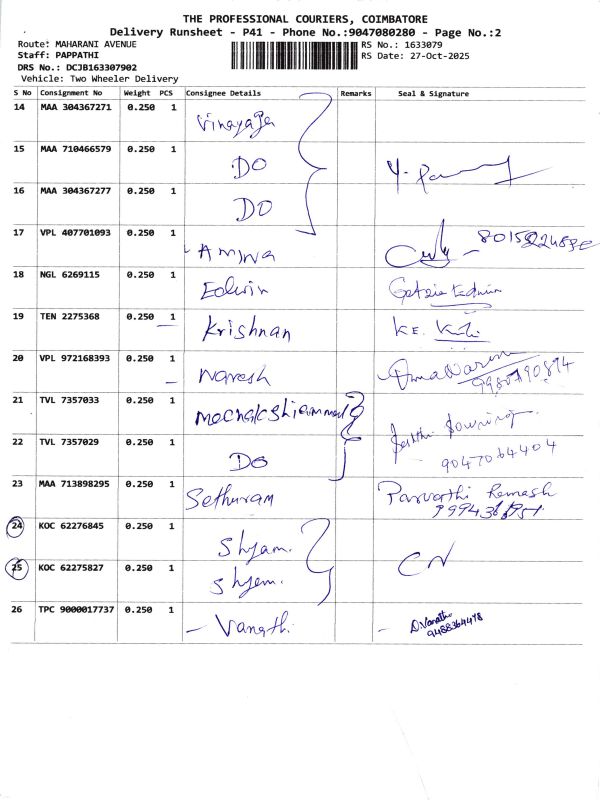 THE PROFESSIONAL COURIERS, COIMBATORE
Delivery Runsheet - P41 - Phone No.:9047080280 - Page No.:2
Route: MAHARANI AVENUE RS No.: 1633079
Staff: PAPPATHI RS Date: 27-Oct-2025
DRS No.: DCJB163307902
Vehicle: Two Wheeler Delivery
S No Consignment No Weight PCS Consignee Details Remarks Seal & Signature
14 MAA 304367271 0.250 1 Vinayaga
15 MAA 710466579 0.250 1 DO
16 MAA 304367277 0.250 1 DO
17 VPL 407701093 0.250 1
18 NGL 6269115 0.250 1 Edwin Edwin
19 TEN 2275368 0.250 1 Krishnan K.E.
20 VPL 972168393 0.250 1 Naresh
21 TVL 7357033 0.250 1
22 TVL 7357029 0.250 1 DO 9047064404
23 MAA 713898295 0.250 1 Sethuram Parvathi Ramesh
24 KOC 62276845 0.250 1 Shyam.
25 KOC 62275827 0.250 1 Shyam. CN
26 TPC 9000017737 0.250 1 - Vanathi - D.Vanathi
9488364478